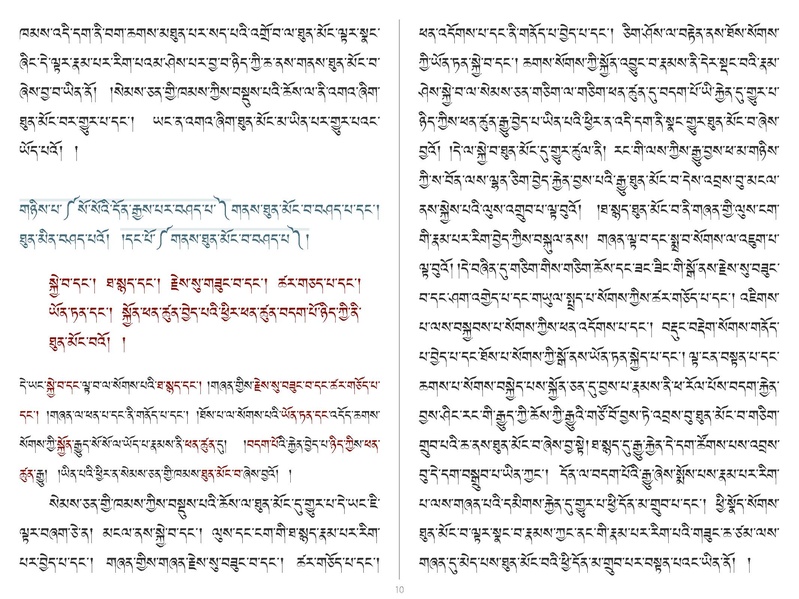 ཁམས་འདི་དག་ནི་བག་ཆགས་མཐུན་པར་སད་པའི་འགྲོ་བ་ལ་ཐུན་མོང་ལྟར་སྣང་
ཞིང་དེ་ལྟར་རྣམ་པར་རིག་པའམ་ཤེས་པར་བྱ་བ་ཉིད་ཀྱི་ཆ་ནས་གནས་ཐུན་མོང་བ་
ཞེས་བྱ་བ་ཡིན་ནོ། །སེམས་ཅན་གྱི་ཁམས་ཀྱིས་བསྡུས་པའི་ཆོས་ལ་ནི་འགའ་ཞིག་
ཐུན་མོང་བར་གྱུར་པ་དང་། ཡང་ན་འགའ་ཞིག་ཐུན་མོང་མ་ཡིན་པར་གྱུར་པའང་
ཡོད་པའོ། །
གཉིས་པ་༼སོ་སོའི་དོན་རྒྱས་པར་བཤད་པ་༽གནས་ཐུན་མོང་བ་བཤད་པ་དང་།
ཐུན་མིན་བཤད་པའོ། །དང་པོ་༼གནས་ཐུན་མོང་བ་བཤད་པ་༽།
སྐྱེ་བ་དང་། ཐ་སྙད་དང་། རྗེས་སུ་གཟུང་བ་དང་། ཚར་གཅད་པ་དང་།
ཡོན་ཏན་དང་། སྐྱོན་ཕན་ཚུན་བྱེད་པའི་ཕྱིར་ཕན་ཚུན་བདག་པོ་ཉིད་ཀྱི་ནི་
ཐུན་མོང་བའོ། །
དེ་ཡང་སྐྱེ་བ་དང་ལྟ་བ་ལ་སོགས་པའི་ཐ་སྙད་དང་། །གཞན་གྱིས་རྗེས་སུ་བཟུང་བ་དང་ཚར་གཅོད་པ་
དང་། །གཞན་ལ་ཕན་པ་དང་ནི་གནོད་པ་དང་། །ཐོས་པ་ལ་སོགས་པའི་ཡོན་ཏན་དང་འདོད་ཆགས་
སོགས་ཀྱི་སྐྱོན་རྒྱུད་སོ་སོ་ལ་ཡོད་པ་རྣམས་ནི་ཕན་ཚུན་དུ། །བདག་པོའི་རྐྱེན་བྱེད་པ་ཉིད་ཀྱིས་ཕན་
ཚུན་རྒྱུ། །ཡིན་པའི་ཕྱིར་ན་སེམས་ཅན་གྱི་ཁམས་ཐུན་མོང་བ་ཞེས་བྱའོ། །
སེམས་ཅན་གྱི་ཁམས་ཀྱིས་བསྡུས་པའི་ཆོས་ལ་ཐུན་མོང་དུ་གྱུར་པ་དེ་ཡང་ཇི་
ལྟར་བཞག་ཅེ་ན། མངལ་ནས་སྐྱེ་བ་དང་། ལུས་དང་ངག་གི་ཐ་སྙད་རྣམ་པར་རིག་
པར་བྱེད་པ་དང་། གཞན་གྱིས་གཞན་རྗེས་སུ་བཟུང་བ་དང་། ཚར་གཅོད་པ་དང་།
ཕན་འདོགས་པ་དང་ནི་གནོད་པ་བྱེད་པ་དང་། ཅིག་ཤོས་ལ་བརྟེན་ནས་ཐོས་སོགས་
ཀྱི་ཡོན་ཏན་སྐྱེ་བ་དང་། ཆགས་སོགས་ཀྱི་སྐྱོན་འབྱུང་བ་རྣམས་ནི་དེར་སྣང་བའི་རྣམ་
ཤེས་སྐྱེ་བ་ལ་སེམས་ཅན་གཅིག་ལ་གཅིག་ཕན་ཚུན་དུ་བདག་པོ་ཡི་རྐྱེན་དུ་གྱུར་པ་
ཉིད་ཀྱིས་ཕན་ཚུན་རྒྱུ་བྱེད་པ་ཡིན་པའི་ཕྱིར་ན་འདི་དག་ནི་སྣང་གྱུར་ཐུན་མོང་བ་ཞེས་
བྱའོ། །དེ་ལ་སྐྱེ་བ་ཐུན་མོང་དུ་གྱུར་ཚུལ་ནི། རང་གི་ལས་ཀྱིས་རྒྱུ་བྱས་ཕ་མ་གཉིས་
ཀྱི་ས་བོན་ལས་ལྷན་ཅིག་བྱེད་རྐྱེན་བྱས་པའི་རྒྱུ་ཐུན་མོང་བ་དེས་འབྲས་བུ་མངལ་
ནས་སྐྱེས་པའི་ལུས་འགྲུབ་པ་ལྟ་བུའོ། །ཐ་སྙད་ཐུན་མོང་བ་ནི་གཞན་གྱི་ལུས་ངག་
གི་རྣམ་པར་རིག་བྱེད་ཀྱིས་བསྐུལ་ནས། གཞན་ལྟ་བ་དང་སྨྲ་བ་སོགས་ལ་འཇུག་པ་
ལྟ་བུའོ། །དེ་བཞིན་དུ་གཅིག་གིས་གཅིག་ཆོས་དང་ཟང་ཟིང་གི་སྒོ་ནས་རྗེས་སུ་བཟུང་
བ་དང་ཤག་འགྱེད་པ་དང་གཡུལ་སྤྲད་པ་སོགས་ཀྱིས་ཚར་གཅོད་པ་དང་། འཇིགས་
པ་ལས་བསྐྱབས་པ་སོགས་ཀྱིས་ཕན་འདོགས་པ་དང་། བརྡུང་བརྡེག་སོགས་གནོད་
པ་བྱེད་པ་དང་ཐོས་པ་སོགས་ཀྱི་སྒོ་ནས་ཡོན་ཏན་སྐྱེད་པ་དང་། ལྟ་ངན་བསྟན་པ་དང་
ཆགས་པ་སོགས་བསྐྱེད་པས་སྐྱོན་ཅན་དུ་བྱས་པ་རྣམས་ནི་ཕ་རོལ་པོས་བདག་རྐྱེན་
བྱས་ཤིང་རང་གི་རྒྱུད་ཀྱི་ཆོས་ཀྱི་རྒྱུའི་གཙོ་བོ་བྱས་ཏེ་འབྲས་བུ་ཐུན་མོང་བ་གཅིག་
གྲུབ་པའི་ཆ་ནས་ཐུན་མོང་བ་ཞེས་བྱ་སྟེ། ཐ་སྙད་དུ་རྒྱུ་རྐྱེན་དེ་དག་ཚོགས་པས་འབྲས་
བུ་དེ་དག་བསྒྲུབ་པ་ཡིན་ཀྱང་། དོན་ལ་བདག་པོའི་རྒྱུ་ཞེས་སྨོས་པས་རྣམ་པར་རིག་
པ་ལས་གཞན་པའི་དམིགས་རྐྱེན་དུ་གྱུར་པ་ཕྱི་དོན་མ་གྲུབ་པ་དང་། ཕྱི་སྣོད་སོགས་
ཐུན་མོང་བ་ལྟར་སྣང་བ་རྣམས་ཀྱང་ནང་གི་རྣམ་པར་རིག་པའི་གཟུང་ཆ་ཙམ་ལས་
གཞན་དུ་མེད་པས་ཐུན་མོང་བའི་ཕྱི་དོན་མ་གྲུབ་པར་བསྟན་པའང་ཡིན་ནོ། །
10